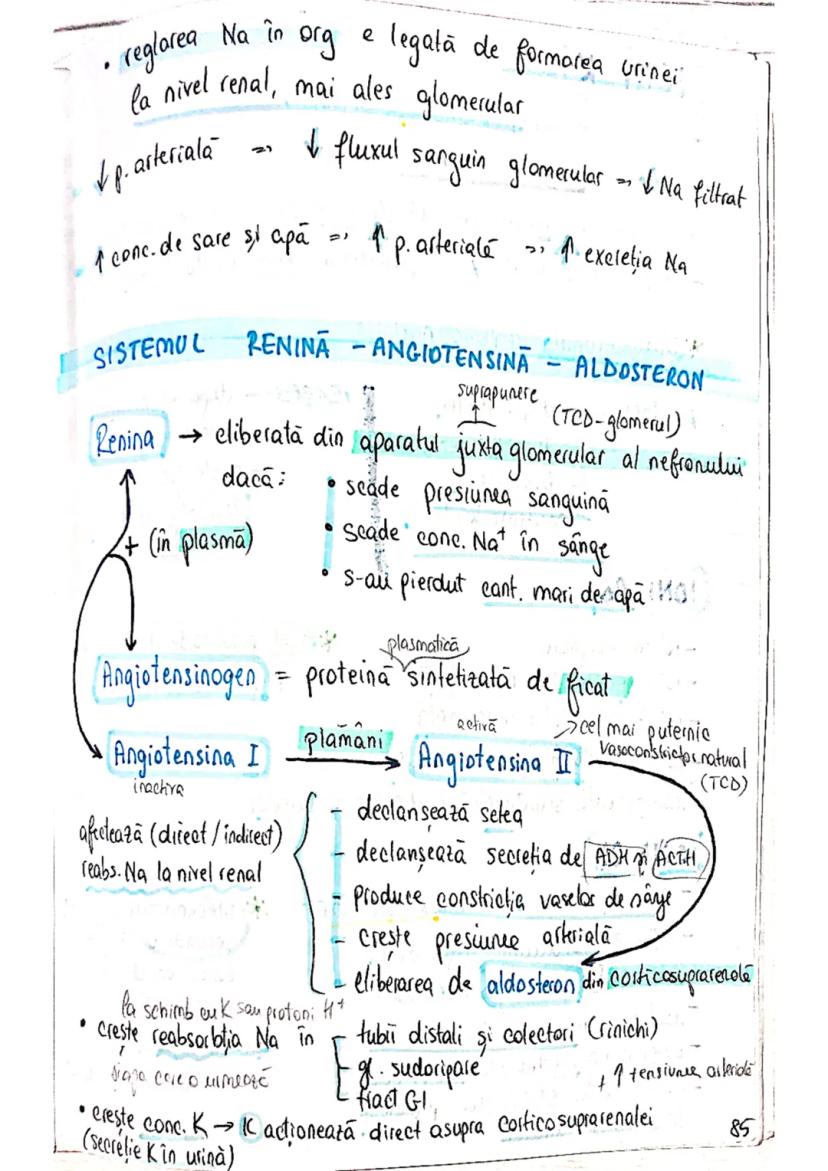 • reglarea Na în org e legată de formarea urinei
la nivel renal, mai ales glomerular
↓ p. arterială => ↓ fluxul sanguin glomerular => ↓ Na filtrat
↑ conc. de sare și apă => ↑ p. arterială => ↑ excreția Na
SISTEMUL RENINĂ - ANGIOTENSINĂ - ALDOSTERON
suprapunere
(TCD-glomerul)
Renina → eliberată din aparatul juxtaglomerular al nefronului
dacă:
• scade presiunea sanguină
+ (în plasmă)
• scade conc. Na+ în sânge
• s-au pierdut cant. mari de apă
plasmatică
Angiotensinogen = proteină sintetizată de ficat
Angiotensina I
inactiva
plămâni
activă
Angiotensina II
cel mai puternic
vasoconstrictor natural
(TCD)
afectează (direct / indirect)
reabs. Na la nivel renal
- declanșează setea
- declanșează secreția de ADH și ACTH
- produce constricția vaselor de sânge
- crește presiunea arterială
- eliberarea de aldosteron din corticosuprarenală
la schimb cu K sau protoni H+
• crește reabsorbția Na în
tubii distali și colectori (rinichi)
gl. sudoripare
tract GI
și apa care o urmează
+ ↑ tensiunea arterială
• crește conc. K → K acționează direct asupra corticosuprarenalei
(secreție K în urină)
85